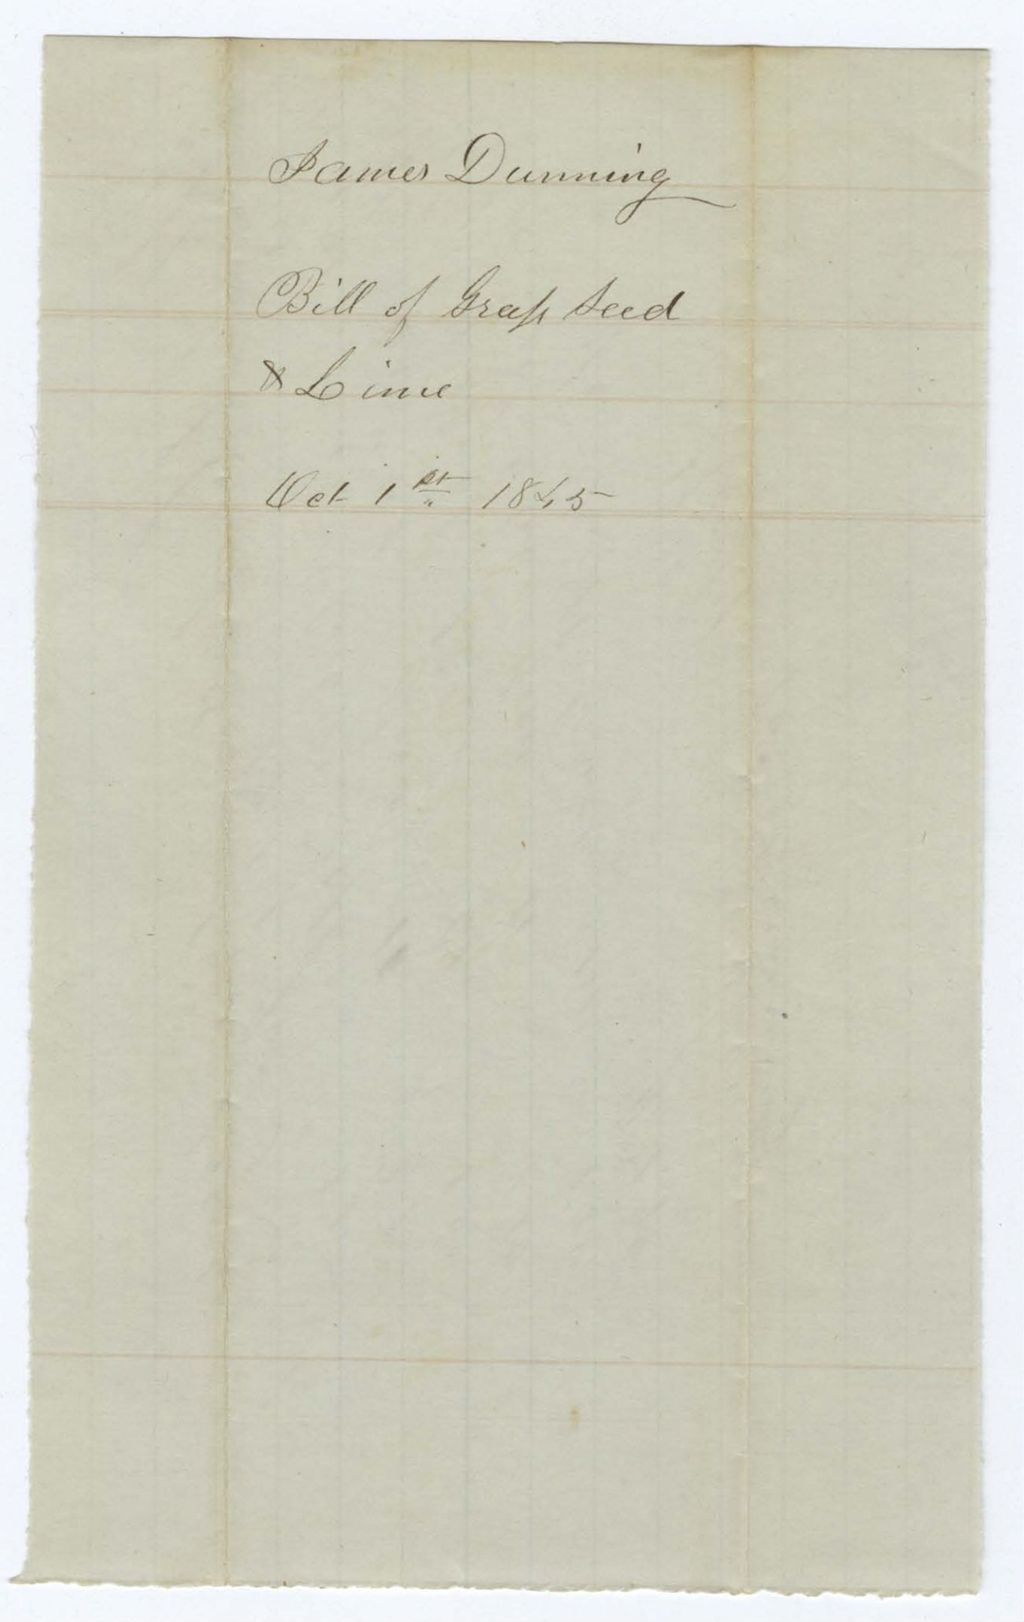 James Dunning
Bill of Grass Seed
& Lime
Oct 1st 1845